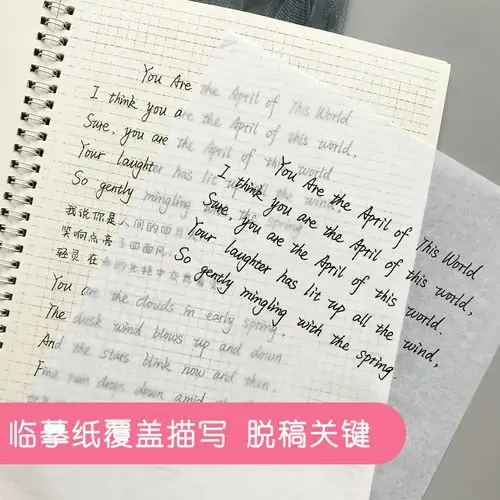 You Are the April of This World
I think you are the April of this world,
Sure, you are the April of this world.
Your laughter has lit up all the wind,
So gently mingling with the spring.
我说你是人间的四月
笑响点亮了四面风，
轻灵在春的光艳中交舞着变
You are the clouds in early spring,
The dusk wind blows up and down
And the stars blink now and then,
Fine rain drops down amid
You Are the April of This World
I think you are the April of this world,
Sure, you are the April of this world.
Your laughter has lit up all the wind,
So gently mingling with the spring.
临摹纸覆盖描写 脱稿关键